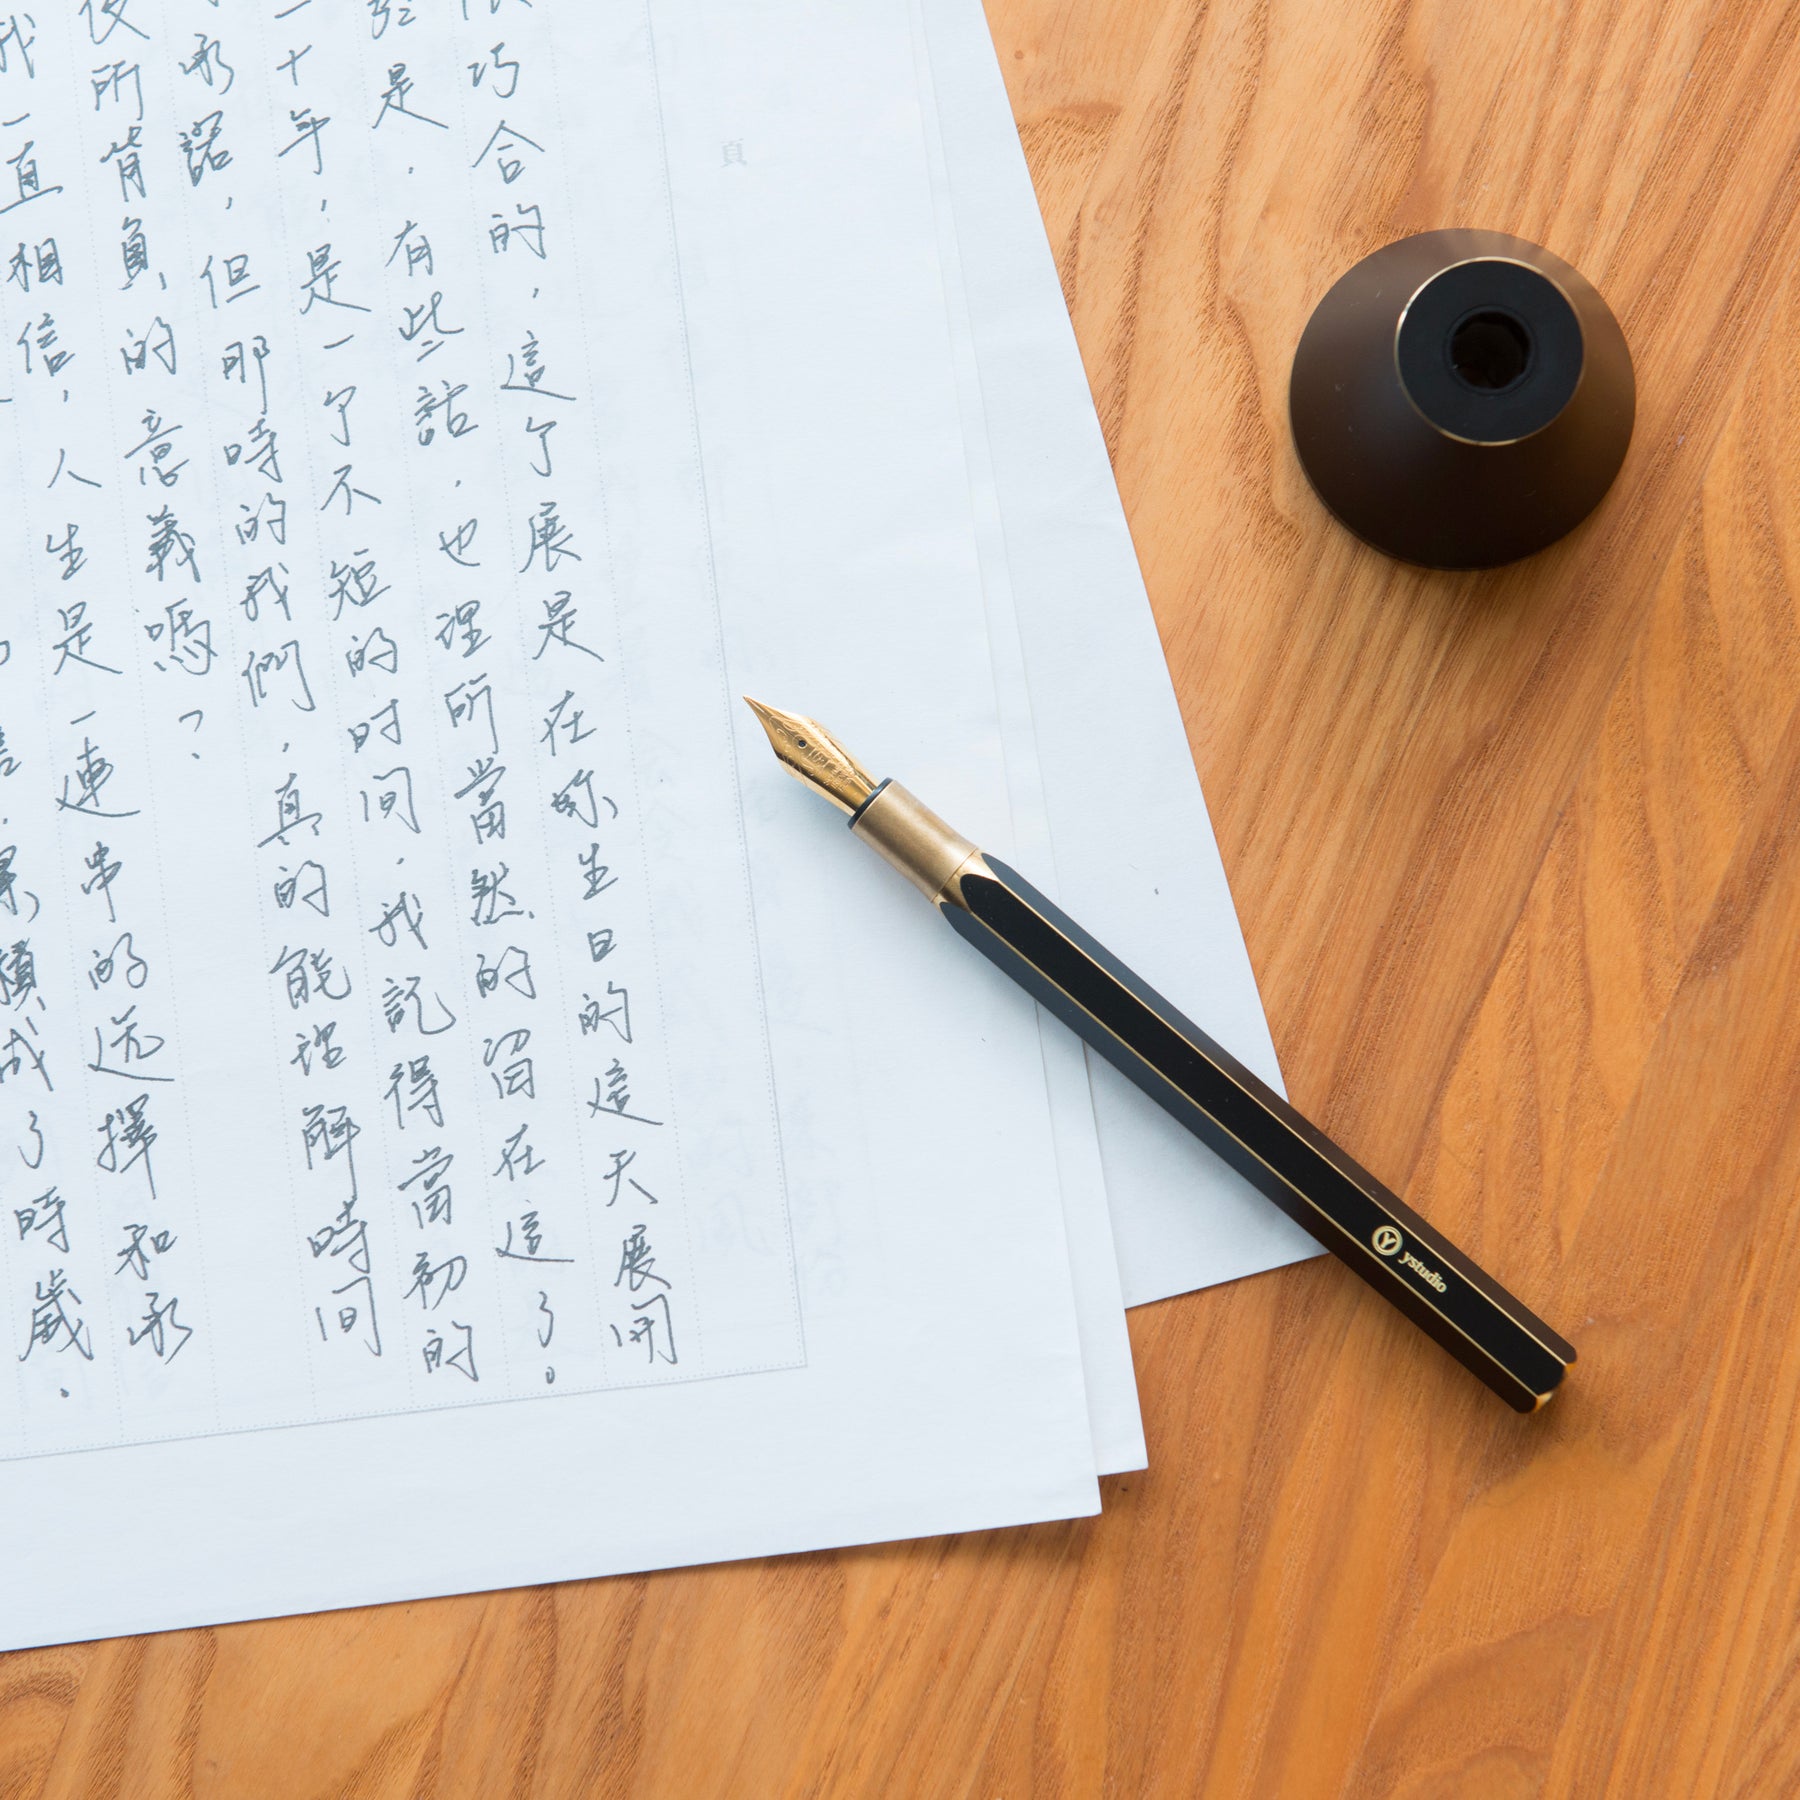 在妳生日的這天展開
巧合的，這个展是
有些話．也理所當然的留在這了。
是．
二十年，是一个不短的时间．我記得當初的
承諾，但那時的我們，真的能理解時間
後所背負的意義嗎？
我一直相信，人生是一連串的选擇和承
積成了時歲．
頁
ystudio